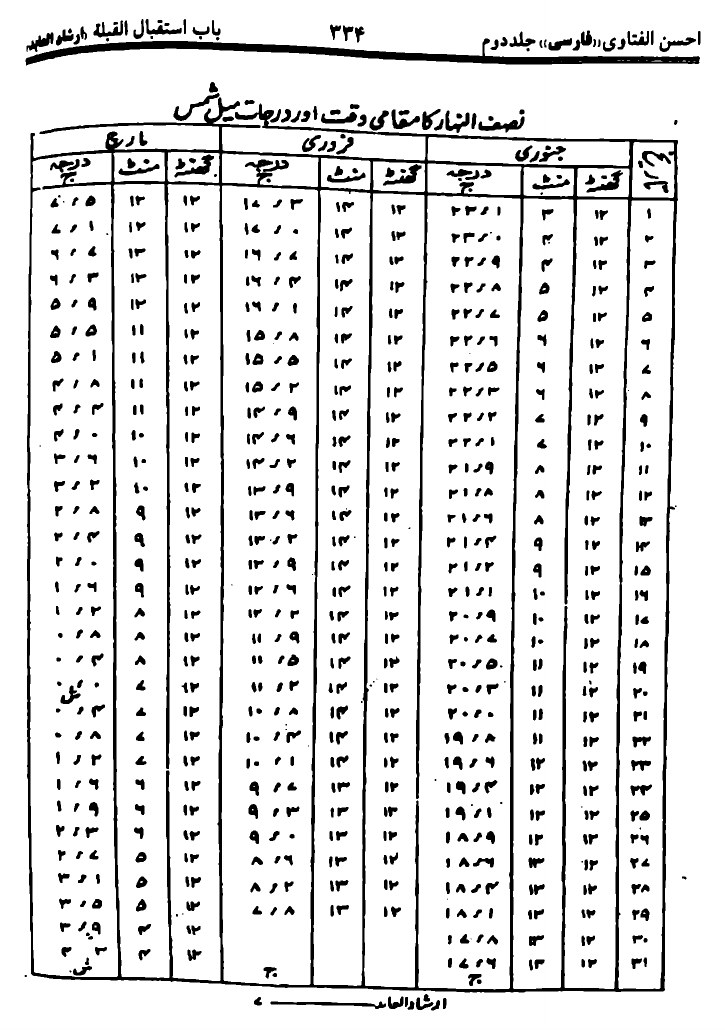 احسن الفتاوی «فارسی» جلد دوم ۳۳۴ باب استقبال القبلة «ارشاد العابد»
نصف النہار کا مقامی وقت اور درجات میل شمس
تاریخ جنوری فروری مارچ
گھنٹہ منٹ درجہ ج گھنٹہ منٹ درجہ ج گھنٹہ منٹ درجہ ج
۱ ۱۲ ۳ ۲۳٫۱ ۱۲ ۱۴ ۱۷٫۳ ۱۲ ۱۲ ۷٫۵
۲ ۱۲ ۴ ۲۳٫۰ ۱۲ ۱۴ ۱۷٫۰ ۱۲ ۱۲ ۷٫۱
۳ ۱۲ ۴ ۲۲٫۹ ۱۲ ۱۴ ۱۶٫۷ ۱۲ ۱۲ ۶٫۷
۴ ۱۲ ۵ ۲۲٫۸ ۱۲ ۱۴ ۱۶٫۴ ۱۲ ۱۲ ۶٫۳
۵ ۱۲ ۵ ۲۲٫۷ ۱۲ ۱۴ ۱۶٫۱ ۱۲ ۱۲ ۵٫۹
۶ ۱۲ ۶ ۲۲٫۶ ۱۲ ۱۴ ۱۵٫۸ ۱۲ ۱۱ ۵٫۵
۷ ۱۲ ۶ ۲۲٫۵ ۱۲ ۱۴ ۱۵٫۵ ۱۲ ۱۱ ۵٫۱
۸ ۱۲ ۶ ۲۲٫۳ ۱۲ ۱۴ ۱۵٫۲ ۱۲ ۱۱ ۴٫۸
۹ ۱۲ ۷ ۲۲٫۲ ۱۲ ۱۴ ۱۴٫۹ ۱۲ ۱۱ ۴٫۴
۱۰ ۱۲ ۷ ۲۲٫۱ ۱۲ ۱۴ ۱۴٫۶ ۱۲ ۱۰ ۴٫۰
۱۱ ۱۲ ۸ ۲۱٫۹ ۱۲ ۱۴ ۱۴٫۲ ۱۲ ۱۰ ۳٫۶
۱۲ ۱۲ ۸ ۲۱٫۸ ۱۲ ۱۴ ۱۳٫۹ ۱۲ ۱۰ ۳٫۲
۱۳ ۱۲ ۸ ۲۱٫۶ ۱۲ ۱۴ ۱۳٫۶ ۱۲ ۹ ۲٫۸
۱۴ ۱۲ ۹ ۲۱٫۴ ۱۲ ۱۴ ۱۳٫۲ ۱۲ ۹ ۲٫۴
۱۵ ۱۲ ۹ ۲۱٫۲ ۱۲ ۱۴ ۱۲٫۹ ۱۲ ۹ ۲٫۰
۱۶ ۱۲ ۱۰ ۲۱٫۱ ۱۲ ۱۴ ۱۲٫۶ ۱۲ ۹ ۱٫۶
۱۷ ۱۲ ۱۰ ۲۰٫۹ ۱۲ ۱۴ ۱۲٫۲ ۱۲ ۸ ۱٫۲
۱۸ ۱۲ ۱۰ ۲۰٫۷ ۱۲ ۱۴ ۱۱٫۹ ۱۲ ۸ ۰٫۸
۱۹ ۱۲ ۱۱ ۲۰٫۵ ۱۲ ۱۴ ۱۱٫۵ ۱۲ ۸ ۰٫۴
۲۰ ۱۲ ۱۱ ۲۰٫۳ ۱۲ ۱۴ ۱۱٫۲ ۱۲ ۷ ۰٫۰ ش
۲۱ ۱۲ ۱۱ ۲۰٫۰ ۱۲ ۱۴ ۱۰٫۸ ۱۲ ۷ ۰٫۴
۲۲ ۱۲ ۱۱ ۱۹٫۸ ۱۲ ۱۴ ۱۰٫۴ ۱۲ ۷ ۰٫۸
۲۳ ۱۲ ۱۲ ۱۹٫۶ ۱۲ ۱۴ ۱۰٫۱ ۱۲ ۷ ۱٫۲
۲۴ ۱۲ ۱۲ ۱۹٫۴ ۱۲ ۱۳ ۹٫۷ ۱۲ ۶ ۱٫۶
۲۵ ۱۲ ۱۲ ۱۹٫۱ ۱۲ ۱۳ ۹٫۳ ۱۲ ۶ ۱٫۹
۲۶ ۱۲ ۱۲ ۱۸٫۹ ۱۲ ۱۳ ۹٫۰ ۱۲ ۶ ۲٫۳
۲۷ ۱۲ ۱۳ ۱۸٫۶ ۱۲ ۱۳ ۸٫۶ ۱۲ ۵ ۲٫۷
۲۸ ۱۲ ۱۳ ۱۸٫۴ ۱۲ ۱۳ ۸٫۲ ۱۲ ۵ ۳٫۱
۲۹ ۱۲ ۱۳ ۱۸٫۱ ۱۲ ۱۳ ۷٫۸ ۱۲ ۵ ۳٫۵
۳۰ ۱۲ ۱۳ ۱۷٫۸ ۱۲ ۴ ۳٫۹
۳۱ ۱۲ ۱۳ ۱۷٫۶ ۱۲ ۴ ۴٫۳
ج ج ش
ارشاد العابد ــــــــ ۷